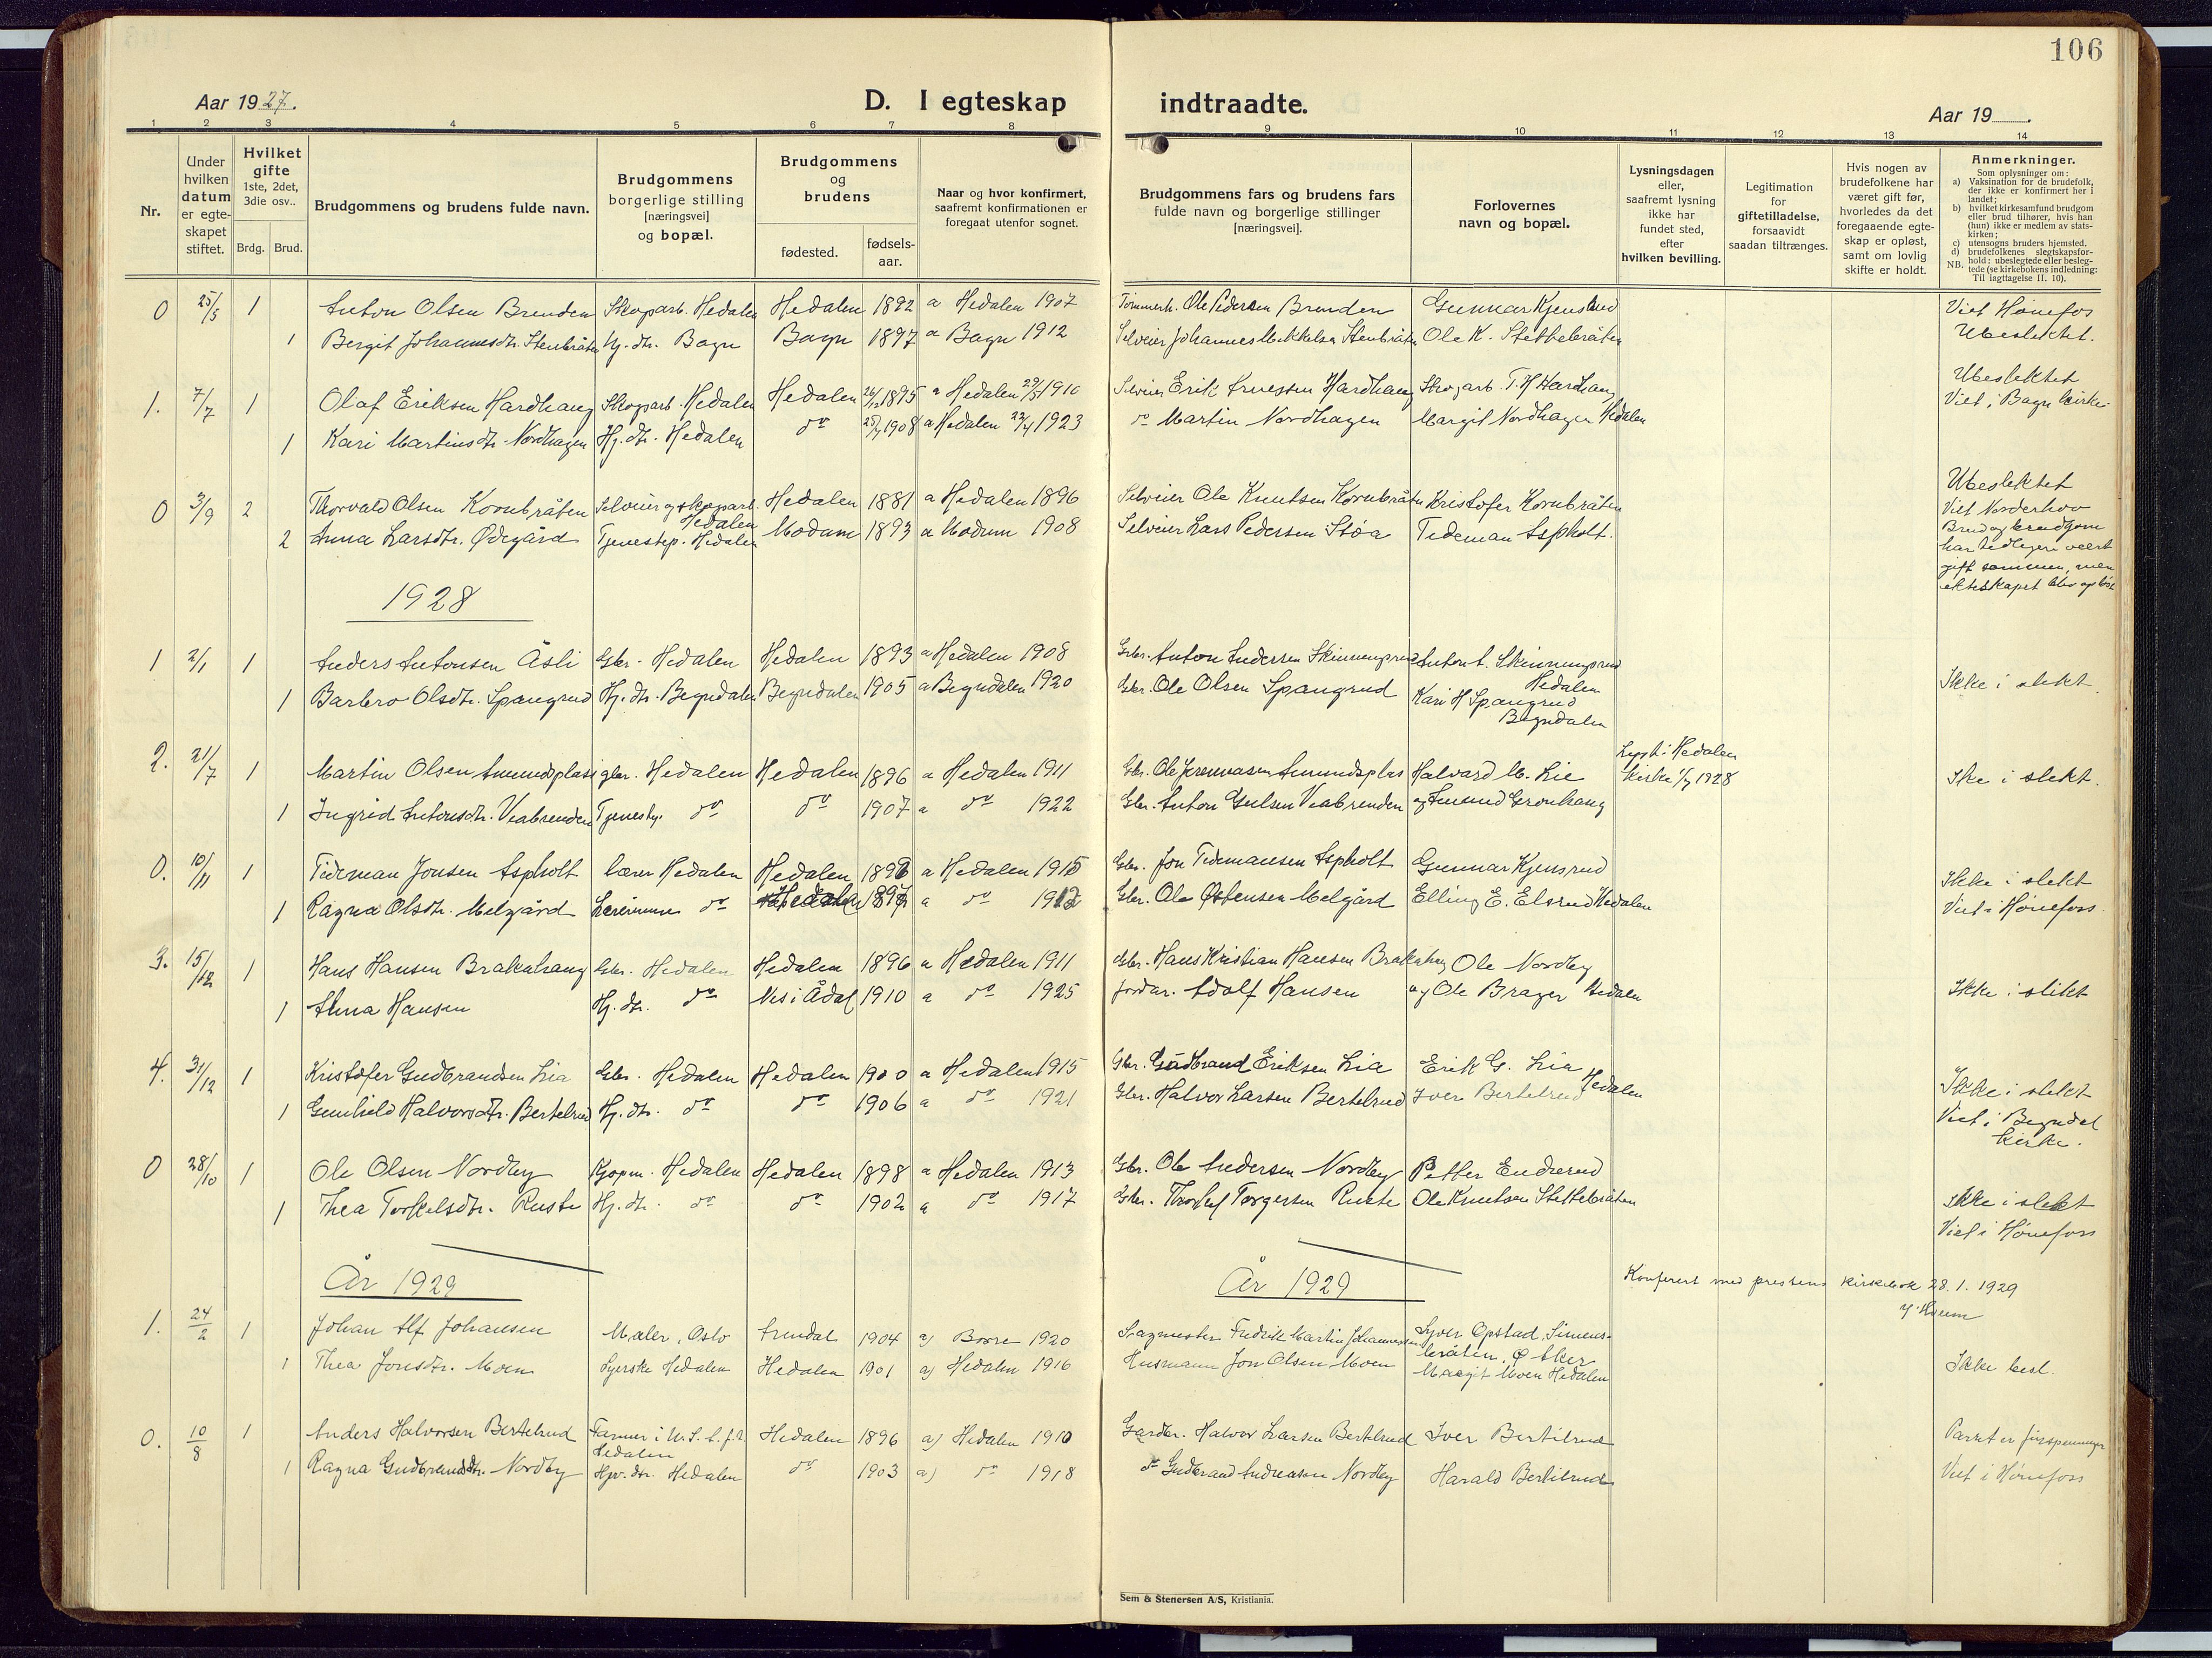 106
Aar 1927.
D. I egteskap indtraadte.
Aar 19 .
1 2 3 4 5 6 7 8 9 10 11 12 13 14
Nr.
Under hvilken datum er egteskapet stiftet.
Hvilket gifte 1ste, 2det, 3die osv..
Brdg. Brud.
Brudgommens og brudens fulde navn.
Brudgommens borgerlige stilling [næringsvei] og bopæl.
Brudgommens og brudens
fødested.
fødselsaar.
Naar og hvor konfirmert, saafremt konfirmationen er foregaat utenfor sognet.
Brudgommens fars og brudens fars fulde navn og borgerlige stillinger [næringsvei].
Forlovernes navn og bopæl.
Lysningsdagen eller, saafremt lysning ikke har fundet sted, efter hvilken bevilling.
Legitimation for giftetilladelse, forsaavidt saadan tiltrænges.
Hvis nogen av brudefolkene har været gift før, hvorledes da det foregaaende egteskap er opløst, samt om lovlig skifte er holdt.
Anmerkninger.
Som oplysninger om:
a) Vaksination for de brudefolk, der ikke er konfirmert her i landet;
b) hvilket kirkesamfund brudgom eller brud tilhører, hvis han (hun) ikke er medlem av statskirken;
c) utensogns bruders hjemsted.
d) brudefolkenes slegtskapsforhold: ubeslegtede eller beslegtede (se kirkebokens indledning:
NB. Til iagttagelse II. 10).
0 25/5 1 Anton Olsen Brenden Skogarb. Hedalen Hedalen 1892 a Hedalen 1907 Tømmerh. Ole Pedersen Brenden Gunnar Kjensrud Viet Hønefos
1 Bergit Johannesdtr. Stenbråten Hj. dtr. Bagn Bagn 1897 a Bagn 1912 Selveier Johannes Mikkelsen Stenbråten Ole K. Stettebråten Ubeslektet.
1. 7/7 1 Olaf Eriksen Hardhaug Skogarb. Hedalen Hedalen 26/12 1895 a Hedalen 29/5 1910 Selveier Erik Arnesen Hardhaug Skogarb. T. H Hardhaug Ubeslektet
1 Kari Martinsdtr. Nordhagen Hj. dtr. Hedalen do 25/7 1908 a Hedalen 22/4 1923 do Martin Nordhagen Margit Nordhagen Hedalen Viet i Bagn kirke.
0 3/9 2 Thorvald Olsen Kornbråten Selveier og skogarb. Hedalen Hedalen 1881 a Hedalen 1896 Selveier Ole Knutsen Kornbråten Kristofer Kornbråten Ubeslektet
2 Anna Larsdtr. Ødegård Tjenestep. Hedalen Modum 1893 a Modum 1908 Selveier Lars Pedersen Støa Tideman Aspholt. Viet Norderhov
Brud og brudgom
har tidligere vært
gift sammen, men
ekteskapet blev opløst
1928
1 2/1 1 Anders Antonsen Åsli Gbr. Hedalen Hedalen 1893 a Hedalen 1908 Gbr. Anton Andersen Skinningsrud Anton A. Skinningsrud Hedalen
1 Barbro Olsdtr. Spangrud Hj. dtr. Begndalen Begndalen 1905 a Begndalen 1920 Gbr. Ole Olsen Spangrud Kari H Spangrud Begndalen Ikke i slekt.
2. 21/7 1 Martin Olsen Amundsplass gbr. Hedalen Hedalen 1896 a Hedalen 1911 Gbr. Ole Amundsplas Halvard M. Lie Lyst i Hedalen kirke 1/7 1928 Ike i slekt.
1 Ingrid Antonsdtr. Veabrenden Tjenestp. do do 1907 a do 1922 Gbr. Anton Gulsen Veabrenden og Amund Grønhaug
0. 10/11 1 Tideman Jonsen Aspholt Lærer Hedalen Hedalen a Hedalen 1915 Gbr. Jon Tidemansen Aspholt Gunnar Kjensrud Ikke i slekt
1 Ragna Olsdtr. Melgård Lærerinne do Hedalen 1897 a do 1912 Gbr. Ole Østensen Melgård Elling E. Elsrud Hedalen Viet i Hønefoss
3. 15/12 1 Hans Hansen Brakahaug Gbr. Hedalen Hedalen 1896 a Hedalen 1911 Gbr. Hans Kristian Hansen Brakahaug Ole Nordby
1 Anna Hansen Hj. dtr. do Nes i Ådal 1910 a do 1925 Jordar. Adolf Hansen og Ole Brager Hedalen Ikke i slekt
4. 31/12 1 Kristofer Gudbrandsen Lia Gbr. Hedalen Hedalen 1900 a Hedalen 1915 Gbr. Gudbrand Eriksen Lia Erik G. Lia Hedalen Ikke i slekt
1 Gunhild Halvorsdtr. Bertelrud Hj. dtr. do do 1906 a do 1921 Gbr. Halvor Larsen Bertelrud Iver Bertelrud Viet i Begndal kirke.
0 28/10 1 Ole Olsen Nordby Kjøpm. Hedalen Hedalen 1898 a Hedalen 1913 Gbr. Ole Andersen Nordby Petter Enderud Ikke i slekt
1 Thea Torkelsdtr. Ruste Hj. dtr. do do 1902 a do 1917 Gbr. Thorkel Torgersen Ruste Ole Knutsen Stettebråten Viet i Hønefoss
År 1929
År 1929
Konferert med prestens kirkebok 28. 1. 1929
1. 24/2 1 Johan Alf Johansen Maler, Oslo Arendal 1904 a) Borre 1920 Sagmester Fredrik Martin Johannessen Syver Opstad, Simensbråten, Ø Aker
1 Thea Jonsdtr. Moen Syerske Hedalen Hedalen 1901 a) Hedalen 1916 Husmann Jon Olsen Moen Margit Moen Hedalen Ikke besl.
0. 10/8 1 Anders Halvorsen Bertelrud Farmer i U.S.A. f.t. Hedalen Hedalen 1896 a) Hedalen 1910 Gårdbr. Halvor Larsen Bertelrud Iver Bertelrud Parret er
1 Ragna Gudbrandsdtr. Nordby Hjv. dtr. Hedalen do 1903 a) do 1918 do Gudbrand Andreasen Nordby Harald Bertelrud Viet i Hønefoss
Sem & Stenersen A/S, Kristiania.